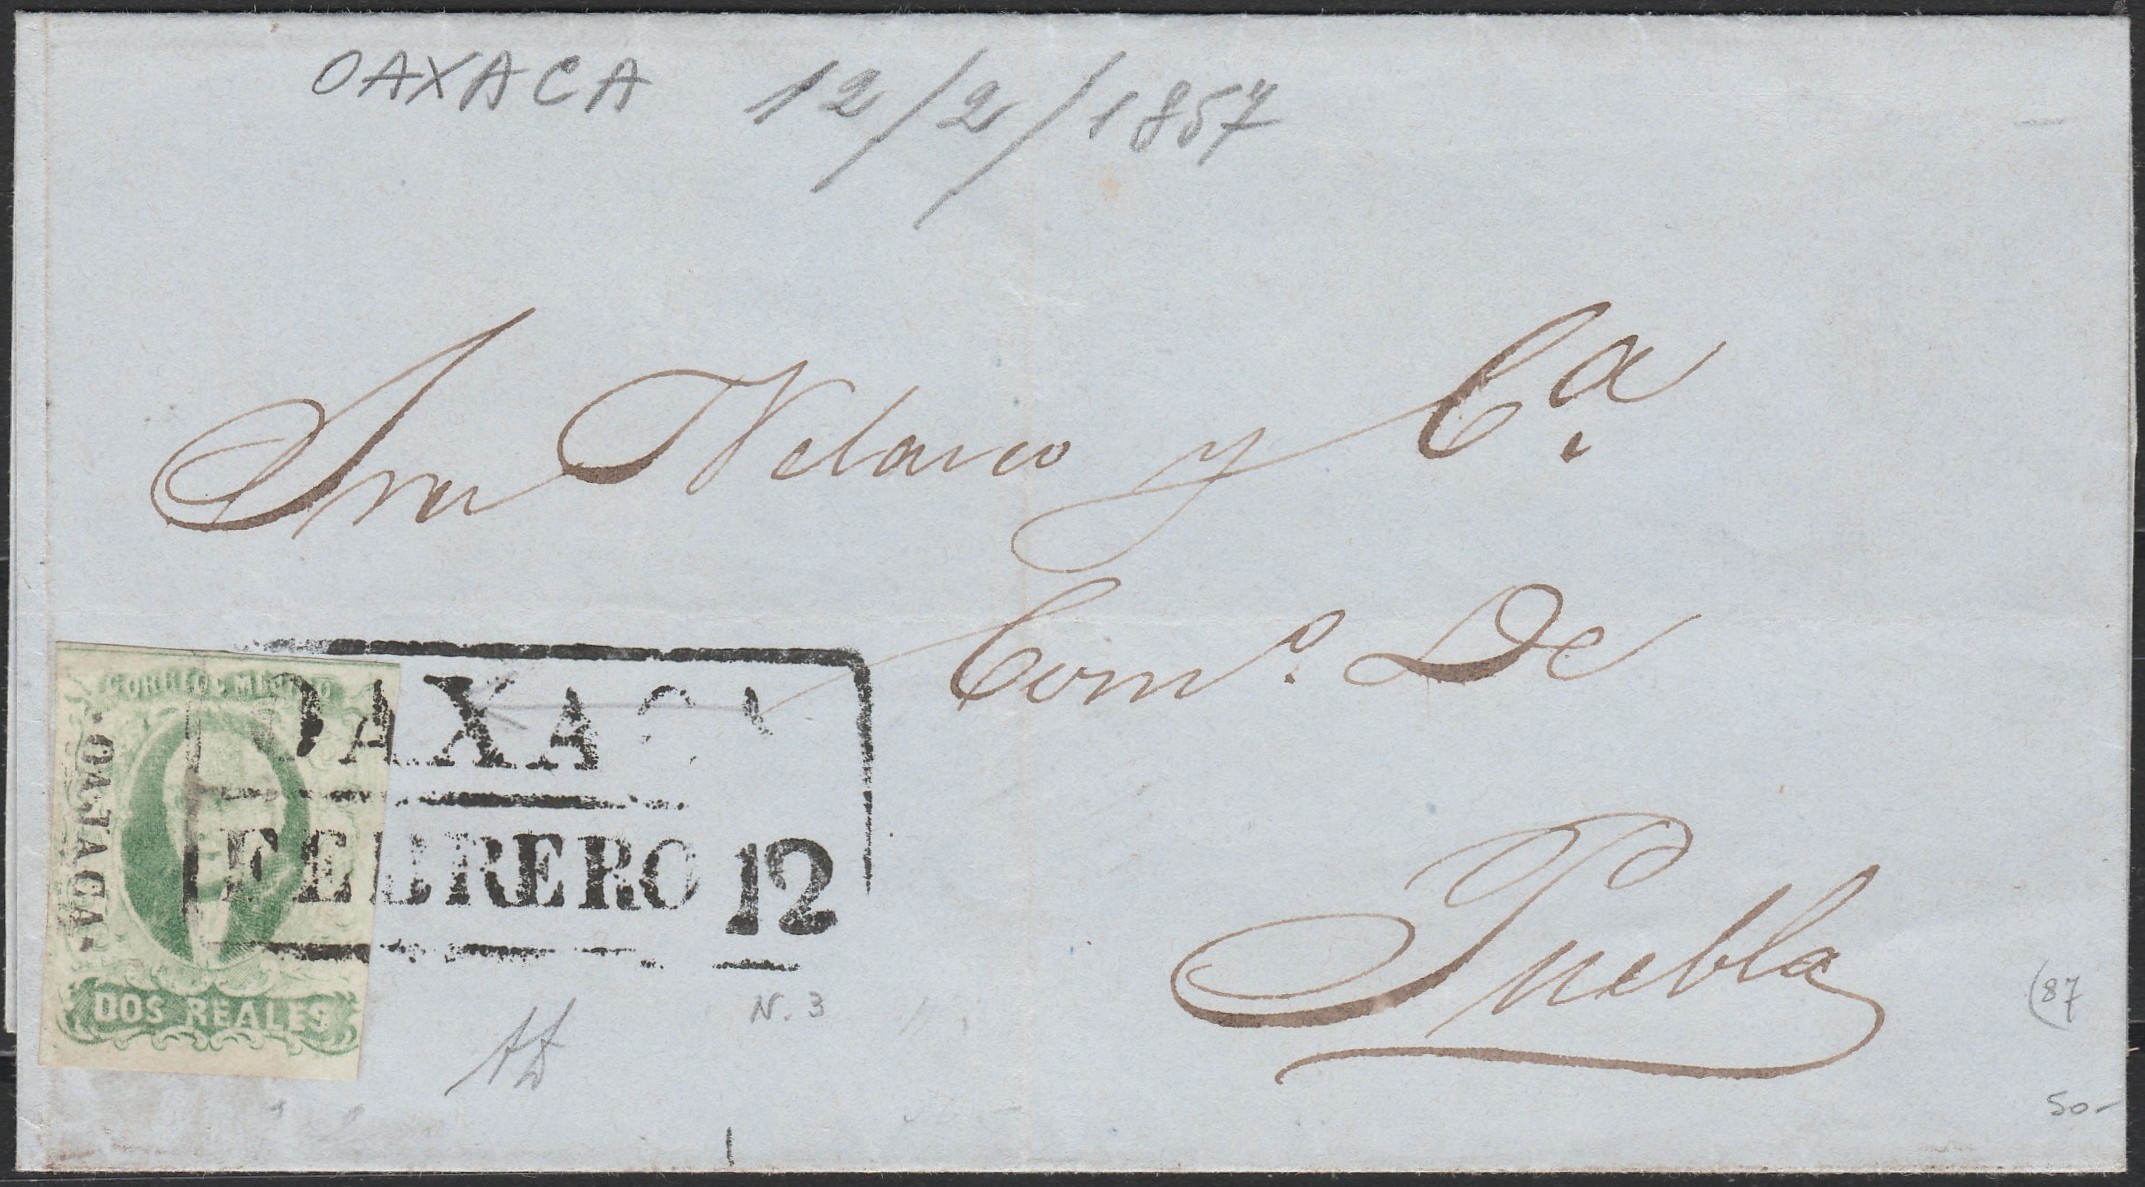 OAXACA 12/2/1857
Sres Velasco y Ca.
Como. De
Puebla
CORREOS MEJICO
OAJACA
DOS REALES
OAXACA
FEBRERO 12
N. 3
(87
50-